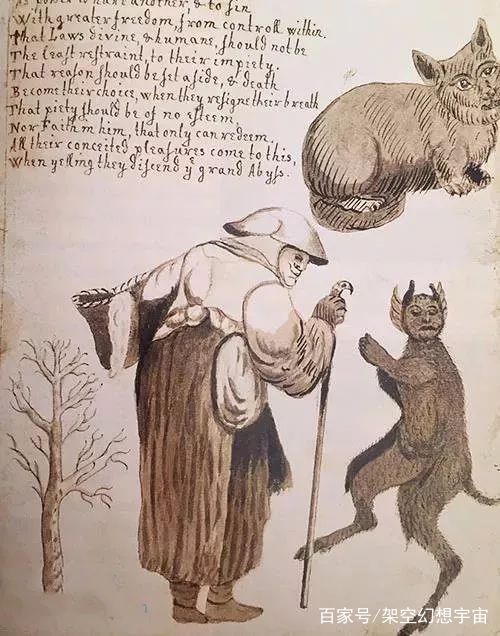 another, & to sin
With greater freedom, from controll within.
That Laws divine, & humane, should not be
The least restraint, to their impiety.
That reason should be set aside, & death
Become their choice, when they resigne their breath
That piety should be of no esteem,
Nor Faith in him, that only can redeem
All their conceited pleasures come to this,
When yelling they discend ye grand Abyss.
百家号/架空幻想宇宙